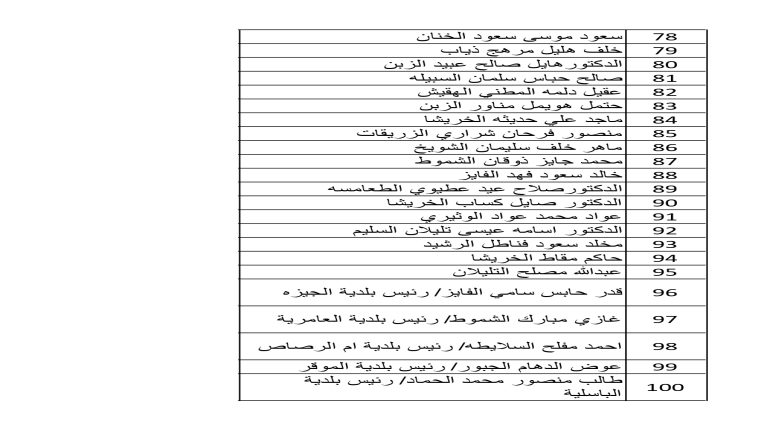 78 سعود موسى سعود الخنان
79 خلف هليل مرهج ذياب
80 الدكتورهايل صالح عبيد الزبن
81 صالح حباس سلمان السبيله
82 عقيل دلمه المطني الهقيش
83 حتمل هويمل مناور الزبن
84 ماجد علي حديثه الخريشا
85 منصور فرحان شراري الزريقات
86 ماهر خلف سليمان الشويخ
87 محمد جايز ذوقان الشموط
88 خالد سعود فهد الفايز
89 الدكتورصلاح عيد عطيوي الطعامسه
90 الدكتور صايل كساب الخريشا
91 عواد محمد عواد الوثيري
92 الدكتور اسامه عيسى تليلان السليم
93 مخلد سعود فناطل الرشيد
94 حاكم مقاط الخريشا
95 عبدالله مصلح التليلان
96 قدر حابس سامي الفايز/ رئيس بلدية الجيزه
97 غازي مبارك الشموط/ رئيس بلدية العامرية
98 احمد مفلح السلايطه/ رئيس بلدية ام الرصاص
99 عوض الدهام الجبور/ رئيس بلدية الموقر
100 طالب منصور محمد الحماد/ رئيس بلدية
الباسلية